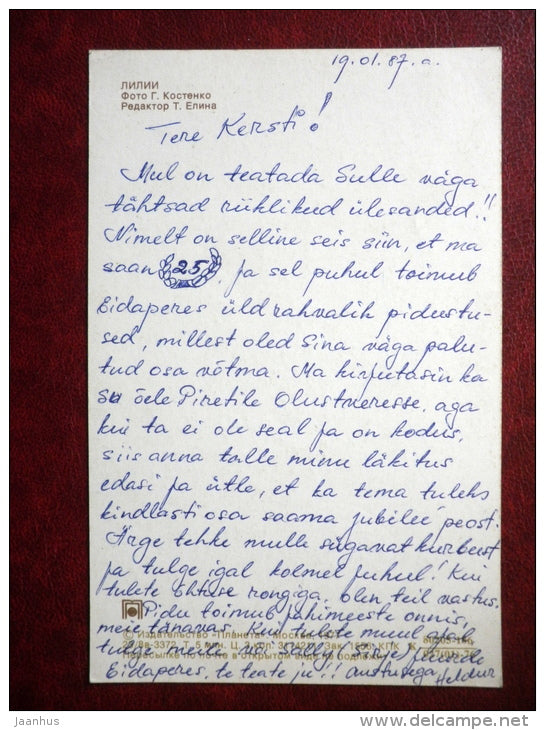 19.01.87.a.
ЛИЛИИ
Фото Г. Костенко
Редактор Т. Елина
Tere Kersti!
Mul on teatada Sulle väga
tähtsad riiklikud ülesanded!!
Nimelt on selline seis siin, et ma
saan 25, ja sel puhul toimub
Eidaperes üldrahvalik pidustu-
sed, millest oled Sina väga palu-
tud osa võtma. Ma kirjutasin ka
Su õele Piretile Olustveresse, aga
kui ta ei ole seal ja on kodus,
siis anna talle minu läkitus
edasi ja ütle, et ka tema tuleks
kindlasti osa saama jubilee peost.
Ärge tehke mulle sügavat kurbust
ja tulge igal kolmel juhul! Kui
tulete õhtuse rongiga, olen teil vastus.
Pidu toimub jahimeeste onnis,
meie tänavas. Kui tulete muul ajal,
© Издательство «Планета» Москва
Зак. КПК
tulge meile või Sally (Sirje) juurde
Пересылка по почте в открытом виде не подлежит
Eidaperes, te teate ju!! Austusega Heldur
jaanhus
www.delcampe.net